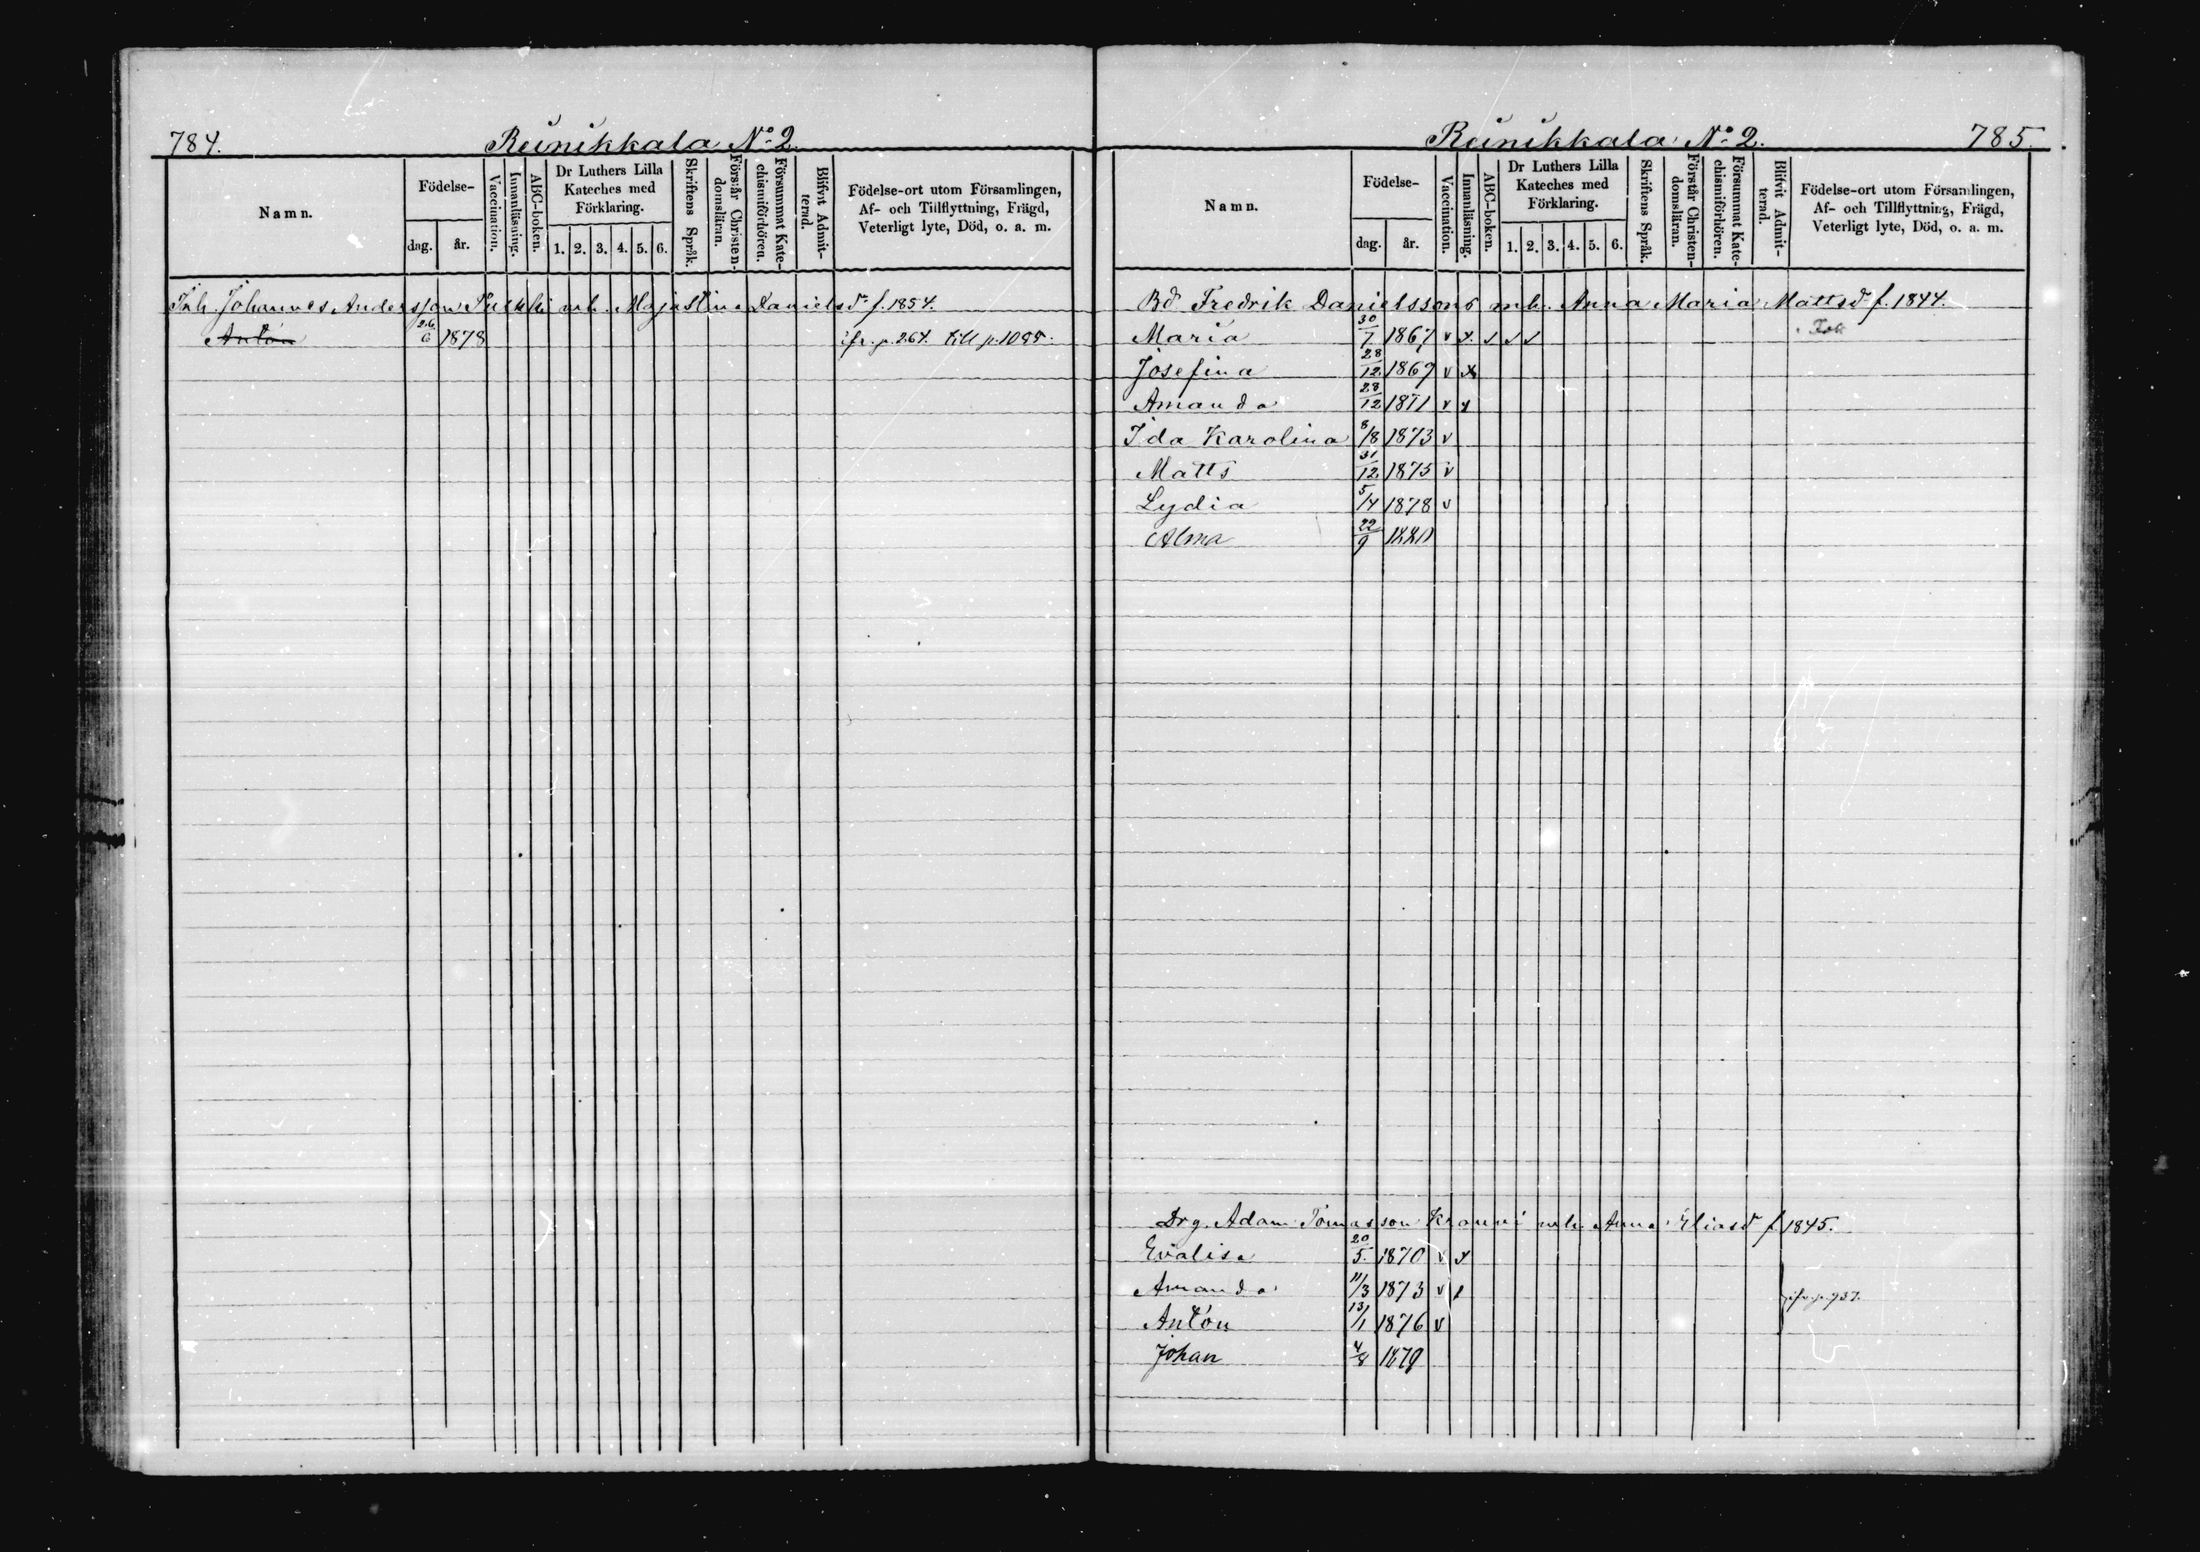 784.
Reinikkala No 2.
Namn.
Födelse-
dag.
år.
Vaccination.
Innanläsning.
ABC-boken.
Dr Luthers Lilla
Kateches med
Förklaring.
1. 2. 3. 4. 5. 6.
Skriftens Språk.
Förstår Christen-
domsläran.
Försummat Kate-
chismiförhören.
Blifvit Admit-
terad.
Födelse-ort utom Församlingen,
Af- och Tillflyttning, Frägd,
Veterligt lyte, Död, o. a. m.
Inh. Johannes Andersson mh. Maja Stina Danielsdr f. 1854.
Anton 26/6 1878 ifr. p. 264. till p. 1095.
Reinikkala No 2.
785.
Namn.
Födelse-
dag.
år.
Vaccination.
Innanläsning.
ABC-boken.
Dr Luthers Lilla
Kateches med
Förklaring.
1. 2. 3. 4. 5. 6.
Skriftens Språk.
Förstår Christen-
domsläran.
Försummat Kate-
chismiförhören.
Blifvit Admit-
terad.
Födelse-ort utom Församlingen,
Af- och Tillflyttning, Frägd,
Veterligt lyte, Död, o. a. m.
Bd Fredrik Danielssons mh. Anna Maria Mattsd f. 1844.
Maria 30/7 1867 v x
Josefina 28/12 1869 v x
Amanda 28/12 1871 v x
Ida Karolina 8/8 1873 v
Matts 31/12 1875 v
Lydia 5/4 1878 v
Alma 22/9 1880
Drg. Adam Tomasson mh. Anna Eliasd f 1845.
Evalisa 20/5 1870 v x
Amanda 11/3 1873 v
ifr. p. 937.
Anton 13/1 1876 v
Johan 4/8 1879